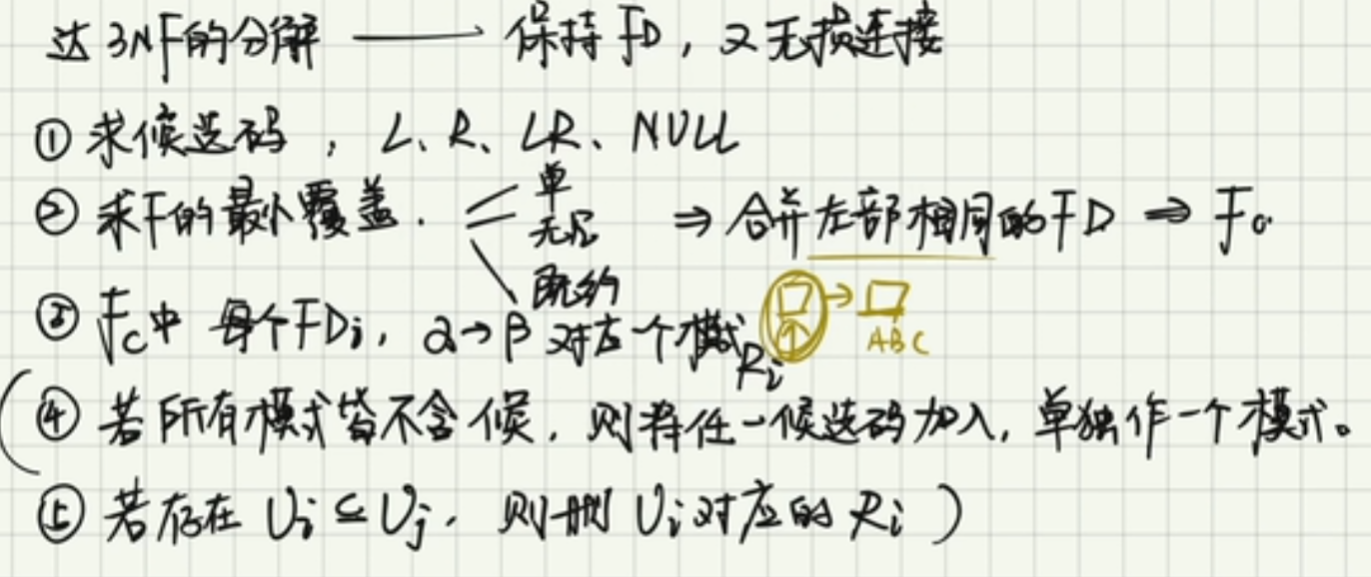 达3NF的分解 —— 保持FD，又无损连接
① 求候选码，L、R、LR、NULL
② 求F的最小覆盖. 单 无冗 既约 ⇒ 合并左部相同的FD ⇒ Fc
③ Fc中 每个FDi，α→β 对应一个模式Ri □→□ ABC
(④ 若所有模式皆不含候，则将任一候选码加入，单独作一个模式。
⑤ 若存在 Ui⊆Uj，则删Ui对应的Ri )